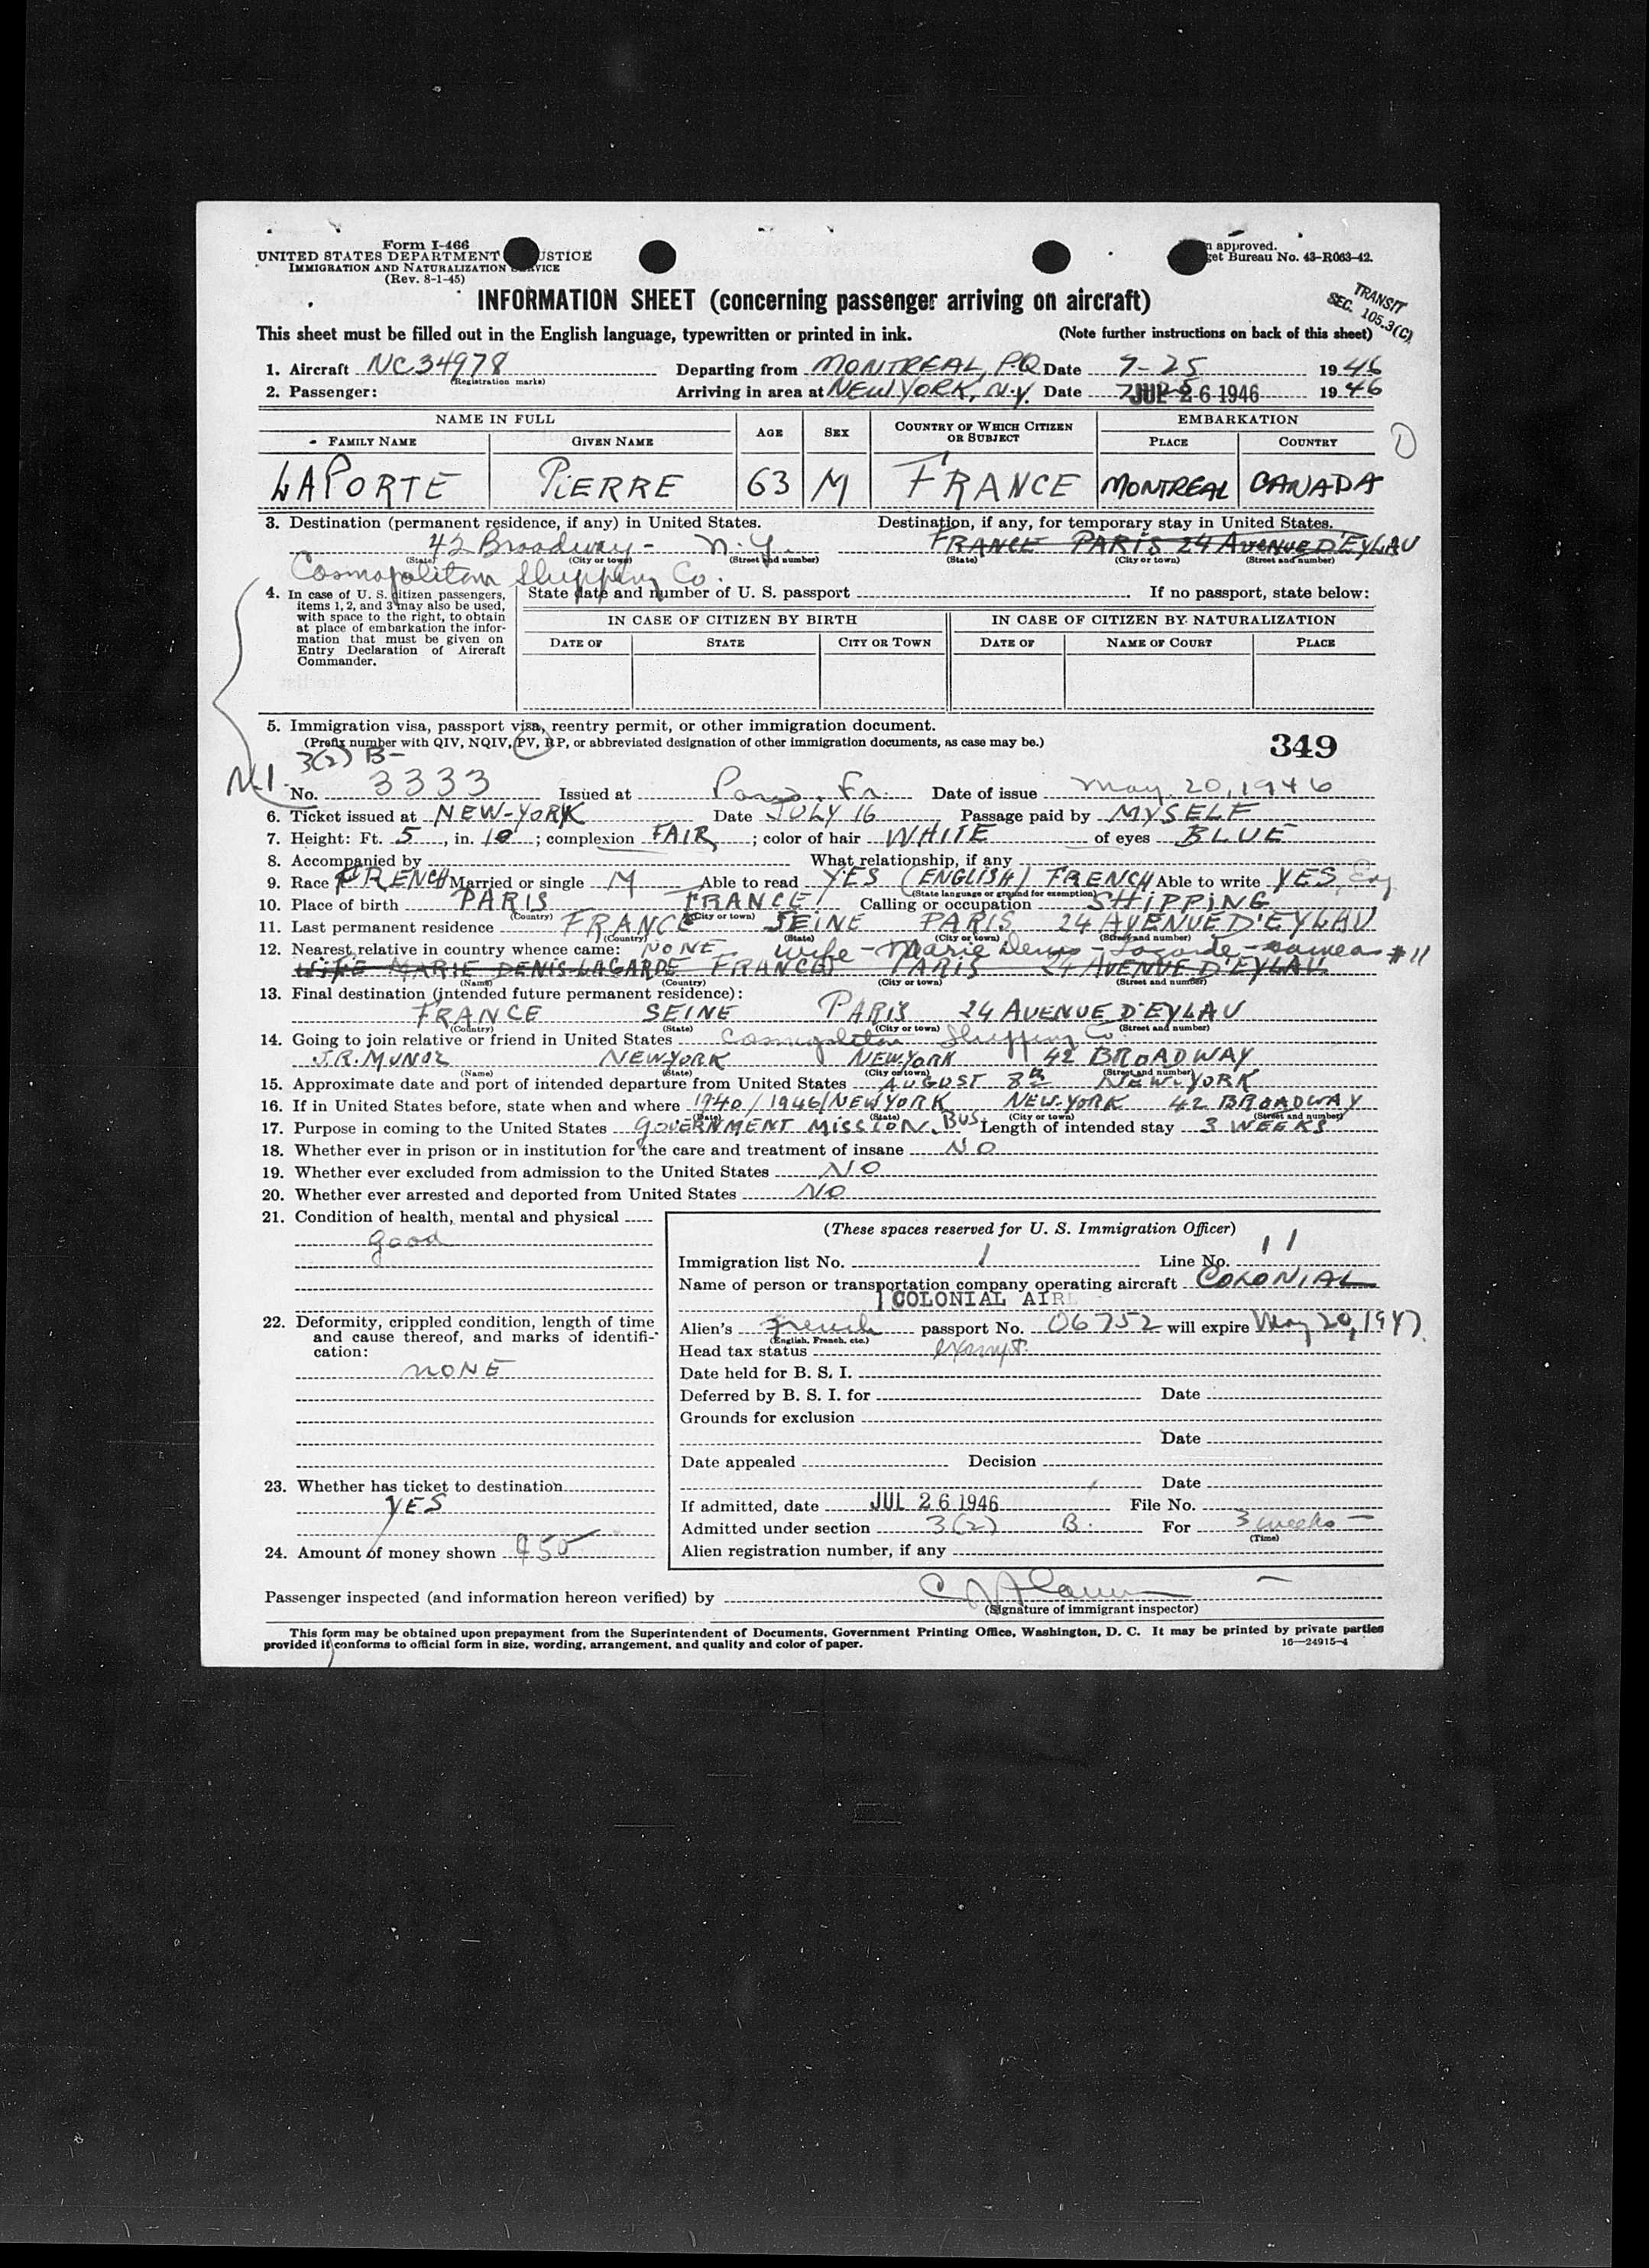 Form I-466
UNITED STATES DEPARTMENT USTICE
IMMIGRATION AND NATURALIZATION VICE
(Rev. 8-1-45)
n approved.
get Bureau No. 43-R063-42.
INFORMATION SHEET (concerning passenger arriving on aircraft)
TRANSIT
SEC. 105.3(C)
This sheet must be filled out in the English language, typewritten or printed in ink. (Note further instructions on back of this sheet)
1. Aircraft NC34978 Departing from MONTREAL, P.Q Date 7-25 1946
(Registration marks)
2. Passenger: Arriving in area at NEW YORK, N.Y. Date JUL 26 1946 1946
NAME IN FULL AGE SEX COUNTRY OF WHICH CITIZEN OR SUBJECT EMBARKATION
FAMILY NAME GIVEN NAME PLACE COUNTRY
LAPORTE PIERRE 63 M FRANCE MONTREAL CANADA
3. Destination (permanent residence, if any) in United States. Destination, if any, for temporary stay in United States.
42 Broadway - N.Y. FRANCE PARIS 24 AVENUE D'EYLAU
(State) (City or town) (Street and number) (State) (City or town) (Street and number)
Cosmopolitan Shipping Co.
4. In case of U. S. citizen passengers, items 1, 2, and 3 may also be used, with space to the right, to obtain at place of embarkation the information that must be given on Entry Declaration of Aircraft Commander.
State date and number of U. S. passport If no passport, state below:
IN CASE OF CITIZEN BY BIRTH IN CASE OF CITIZEN BY NATURALIZATION
DATE OF STATE CITY OR TOWN DATE OF NAME OF COURT PLACE
5. Immigration visa, passport visa, reentry permit, or other immigration document.
(Prefix number with QIV, NQIV, PV, RP, or abbreviated designation of other immigration documents, as case may be.) 349
3(2) B-
No. 3333 Issued at Paris, Fr. Date of issue May 20, 1946
6. Ticket issued at NEW-YORK Date JULY 16 Passage paid by MYSELF
7. Height: Ft. 5, in. 10; complexion FAIR; color of hair WHITE of eyes BLUE
8. Accompanied by What relationship, if any
9. Race FRENCH Married or single M Able to read YES (ENGLISH) FRENCH Able to write YES Eng
(State language or ground for exemption)
10. Place of birth PARIS FRANCE Calling or occupation SHIPPING
(Country) (City or town)
11. Last permanent residence FRANCE SEINE PARIS 24 AVENUE D'EYLAU
(Country) (State) (City or town) (Street and number)
12. Nearest relative in country whence came: NONE wife - Marie Denis - Lagarde - same as #11
WIFE MARIE DENIS-LAGARDE FRANCE PARIS 24 AVENUE D'EYLAU
(Name) (Country) (City or town) (Street and number)
13. Final destination (intended future permanent residence):
FRANCE SEINE PARIS 24 AVENUE D'EYLAU
(Country) (State) (City or town) (Street and number)
14. Going to join relative or friend in United States Cosmopolitan Shipping Co.
J.R. MUNOZ NEW YORK NEW YORK 42 BROADWAY
(Name) (State) (City or town) (Street and number)
15. Approximate date and port of intended departure from United States AUGUST 8th NEW-YORK
16. If in United States before, state when and where 1940/1946/NEW YORK NEW-YORK 42 BROADWAY
(Date) (State) (City or town) (Street and number)
17. Purpose in coming to the United States GOVERNMENT MISSION. BUS Length of intended stay 3 WEEKS
18. Whether ever in prison or in institution for the care and treatment of insane NO
19. Whether ever excluded from admission to the United States NO
20. Whether ever arrested and deported from United States NO
21. Condition of health, mental and physical
good
22. Deformity, crippled condition, length of time and cause thereof, and marks of identification:
NONE
23. Whether has ticket to destination
YES
24. Amount of money shown $50
(These spaces reserved for U. S. Immigration Officer)
Immigration list No. 1 Line No. 11
Name of person or transportation company operating aircraft COLONIAL
COLONIAL AIR
Alien's French passport No. 06752 will expire May 20, 1947.
(English, French, etc.)
Head tax status exempt
Date held for B. S. I.
Deferred by B. S. I. for Date
Grounds for exclusion
Date
Date appealed Decision
Date
If admitted, date JUL 26 1946 File No.
Admitted under section 3(2) B. For 3 weeks
(Time)
Alien registration number, if any
Passenger inspected (and information hereon verified) by
(Signature of immigrant inspector)
This form may be obtained upon prepayment from the Superintendent of Documents, Government Printing Office, Washington, D. C. It may be printed by private parties
provided it conforms to official form in size, wording, arrangement, and quality and color of paper. 16—24915-4